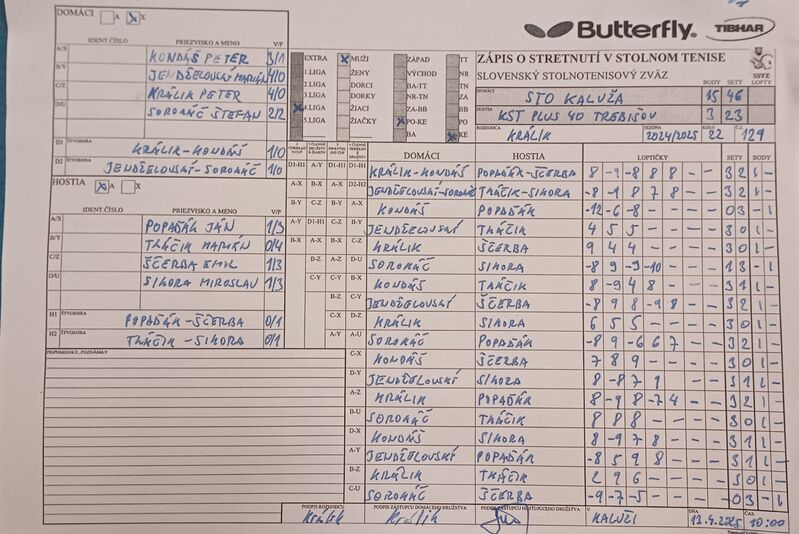 DOMÁCI A X
Butterfly TIBHAR
IDENT.ČÍSLO PRIEZVISKO A MENO V/P
A/X KONDÁŠ PETER 3/1
B/Y JENDŽELOVSKÝ MARIÁN 4/0
C/Z KRÁLIK PETER 4/0
D/U SOROKÁČ ŠTEFAN 2/2
D1 ŠTVORHRA KRÁLIK-KONDÁŠ 1/0
D2 ŠTVORHRA JENDŽELOVSKÝ-SOROKÁČ 1/0
HOSTIA A X
IDENT.ČÍSLO PRIEZVISKO A MENO V/P
A/X POPAĎÁK JÁN 1/3
B/Y TKÁČIK MARIÁN 0/4
C/Z ŠČERBA EMIL 1/3
D/U SIKORA MIROSLAV 1/3
H1 ŠTVORHRA POPAĎÁK-ŠČERBA 0/1
H2 ŠTVORHRA TKÁČIK-SIKORA 0/1
PRIPOMIENKY, POZNÁMKY
EXTRA MUŽI ZÁPAD TT
1.LIGA ŽENY VÝCHOD NR
2.LIGA DORCI BA-TT TN
3.LIGA DORKY NR-TN ZA
4.LIGA ŽIACI ZA-BB BB
5.LIGA ŽIAČKY PO-KE PO
BA KE
ZÁPIS O STRETNUTÍ V STOLNOM TENISE
SLOVENSKÝ STOLNOTENISOVÝ ZVÄZ
SSTZ
DOMÁCI BODY SETY LOPTY
STO KALUŽA 15 46
HOSTIA KST PLUS 40 TREBIŠOV 3 23
ROZHODCA KRÁLIK SEZÓNA 2024/2025 KOLO 22 Č. 129
DOMÁCI HOSTIA LOPTIČKY SETY BODY
D1-H1 A-Y D1-H1 D1-H1 KRÁLIK-KONDÁŠ POPAĎÁK-ŠČERBA 8 -9 -8 8 8 - - 3 2 1 -
A-X B-X A-X D2-H2 JENDŽELOVSKÝ-SOROKÁČ TKÁČIK-SIKORA -8 -1 8 7 8 - - 3 2 1 -
B-Y C-Z B-Y A-X KONDÁŠ POPAĎÁK -12 -6 -8 - - - - 0 3 - 1
A-Y D1-H1 C-Z B-Y JENDŽELOVSKÝ TKÁČIK 4 5 5 - - - - 3 0 1 -
B-X A-X B-X C-Z KRÁLIK ŠČERBA 9 4 4 - - - - 3 0 1 -
B-Z A-Z D-U SOROKÁČ SIKORA -8 9 -9 -10 - - - 1 3 - 1
C-Y B-X KONDÁŠ TKÁČIK 8 -9 4 8 - - - 3 1 1 -
B-Z C-Y JENDŽELOVSKÝ ŠČERBA -8 9 8 -9 8 - - 3 2 1 -
C-X D-Z KRÁLIK SIKORA 6 5 5 - - - - 3 0 1 -
A-Y A-U SOROKÁČ POPAĎÁK -8 9 -6 6 7 - - 3 2 1 -
C-X KONDÁŠ ŠČERBA 7 8 9 - - - - 3 0 1 -
D-Y JENDŽELOVSKÝ SIKORA 8 -8 7 9 - - - 3 1 1 -
A-Z KRÁLIK POPAĎÁK 8 -9 8 -7 4 - - 3 2 1 -
B-U SOROKÁČ TKÁČIK 8 8 8 - - - - 3 0 1 -
D-X KONDÁŠ SIKORA 8 -9 7 8 - - - 3 1 1 -
A-Y JENDŽELOVSKÝ POPAĎÁK -8 5 9 8 - - - 3 1 1 -
B-Z KRÁLIK TKÁČIK 2 9 6 - - - - 3 0 1 -
C-U SOROKÁČ ŠČERBA -9 -7 -5 - - - - 0 3 - 1
PODPIS ROZHODCU PODPIS ZÁSTUPCU DOMÁCEHO DRUŽSTVA PODPIS ZÁSTUPCU HOSŤUJÚCEHO DRUŽSTVA V DŇA ČAS
Králik Králik KALUŽI 13.4.2025 10:00